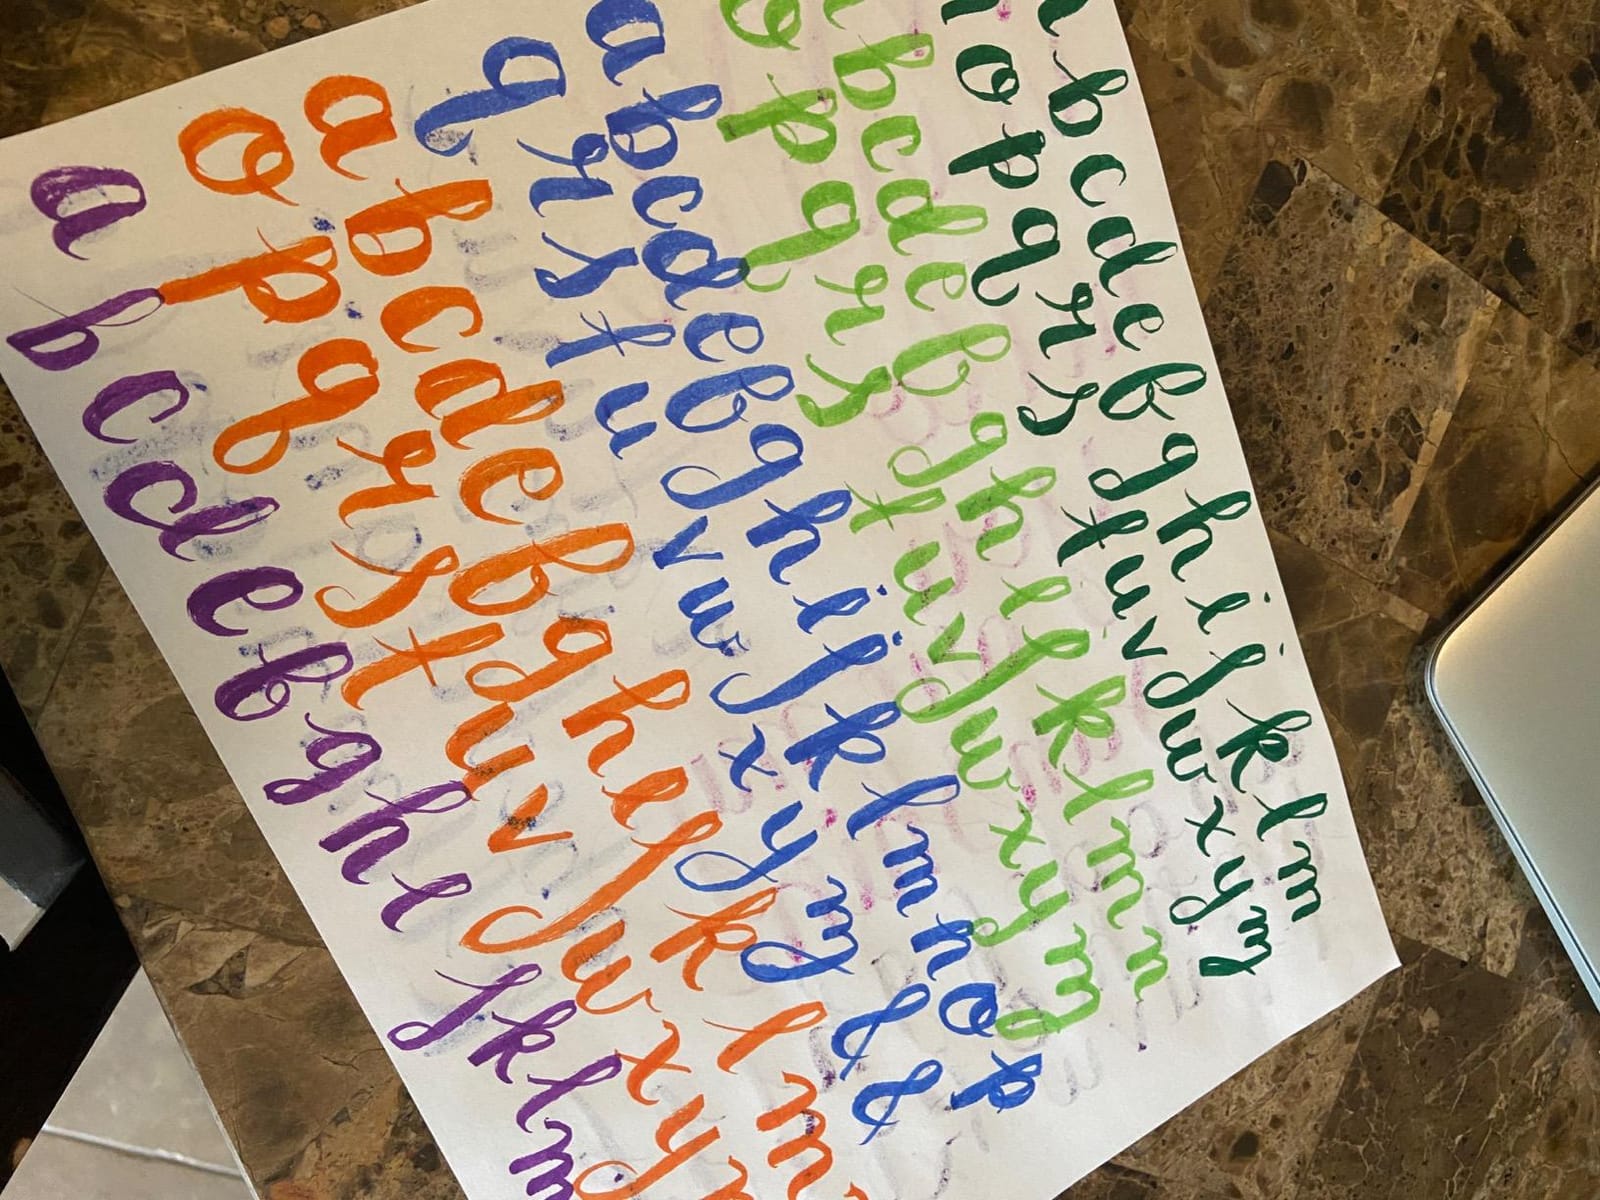 a b c d e f g h i j k l m
n o p q r s t u v w x y z
a b c d e f g h i j k l m n
o p q r s t u v w x y z
a b c d e f g h i j k l m n o p
q r s t u v w x y z & &
a b c d e f g h i j k l m
o p q r s t u v w x y
a b c d e f g h i j k l m